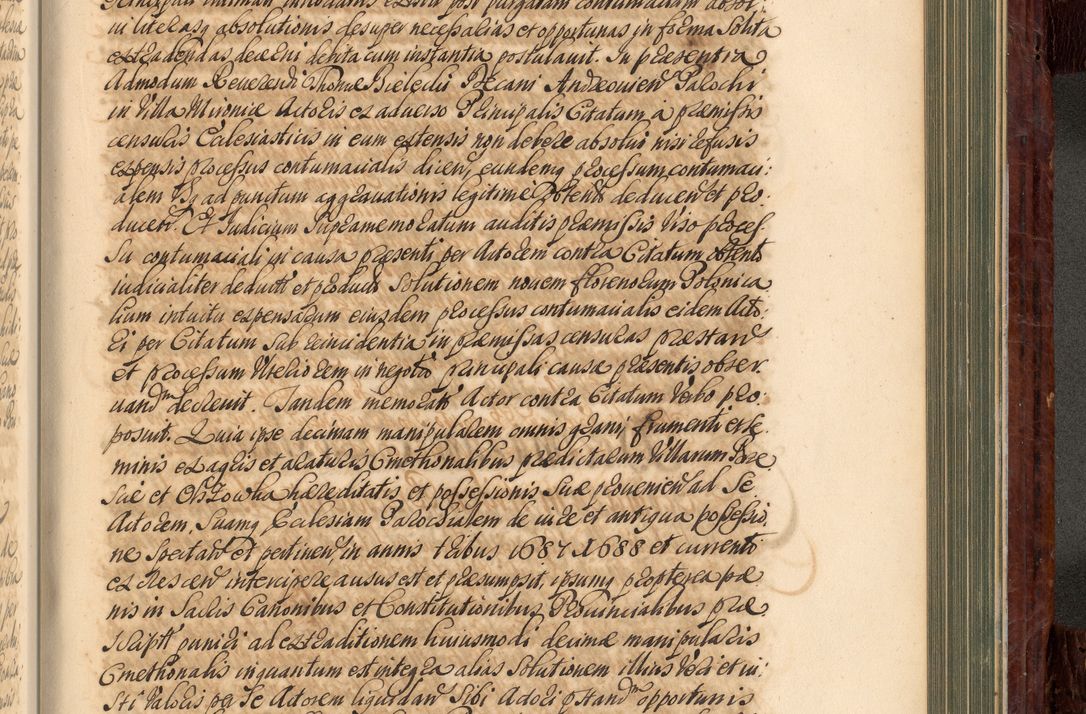 in literasq absolutionis desuper necessalias et opportunas in forma solita
extradendas decerni debita cum instantia postulavit. In praesentia
Admodum Reverendi Thomae Bieleckii Decani Andreovien Parochi
in Villa Mironia Actoris ex adverso Principalis Citatum a praemissis
censuris Ecclesiasticis in eum extensis non debere absolvi nisi refusis
expensis processus contumacialis dicen, eundemq processum contumaci:
alem usq ad punctum aggravationis legitime obtent deducen et pro:
ducen. Et Judicium supramemoratum auditis praemissis viso proces,
su contumaciali in causa praesenti per Actorem contra Citatum obtento
iudicialiter deducti et producti solutionem novem florenorum Polonica
lium intuitu expensarum eiusdem processus contumacialis eidem Acto:
ri per Citatum sub reincidentia in praemissas censuras praestari
et processum ulteriorem in negotio principali causa praesentis obser:
vand decrevit. Tandem memorat Actor contra Citatum verbo pro:
posuit. Quia ipse decimam manipularem omnis grani, frumenti et se
minis ex agris et araturis Cmethonalibus praedictarum Villarum
et Obrzowka haereditatis et possessionis suae provenien ad se
Actorem, suamq Ecclesiam Parochialem de iure et antiqua possessio,
ne spectan et pertinen, in annis tribus 1687 1688 et currento
ex crescen intercipere ausus est et praesumpsit, ipsumq propterea poe
nis in sacris Canonibus et Constitutionibus Provincialibus prae
script puniri ad extraditionem huiusmodi decimae manipularis
Cmethonalis inquantum est integra alias solutionem illius veri et iu:
sti valoris per se Actorem liquidan sibi Actori praestand opportunis